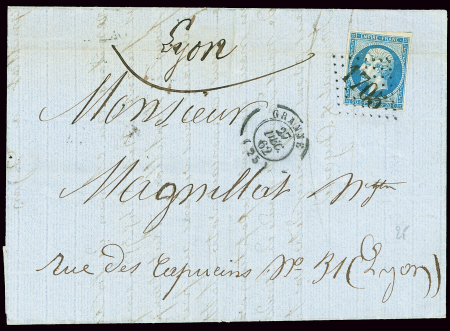 Lyon
EMPIRE FRANC
GRANNE
27
DEC.
62
(25)
Monsieur
Magnillat
rue des Capucins No 31 (Lyon)
26